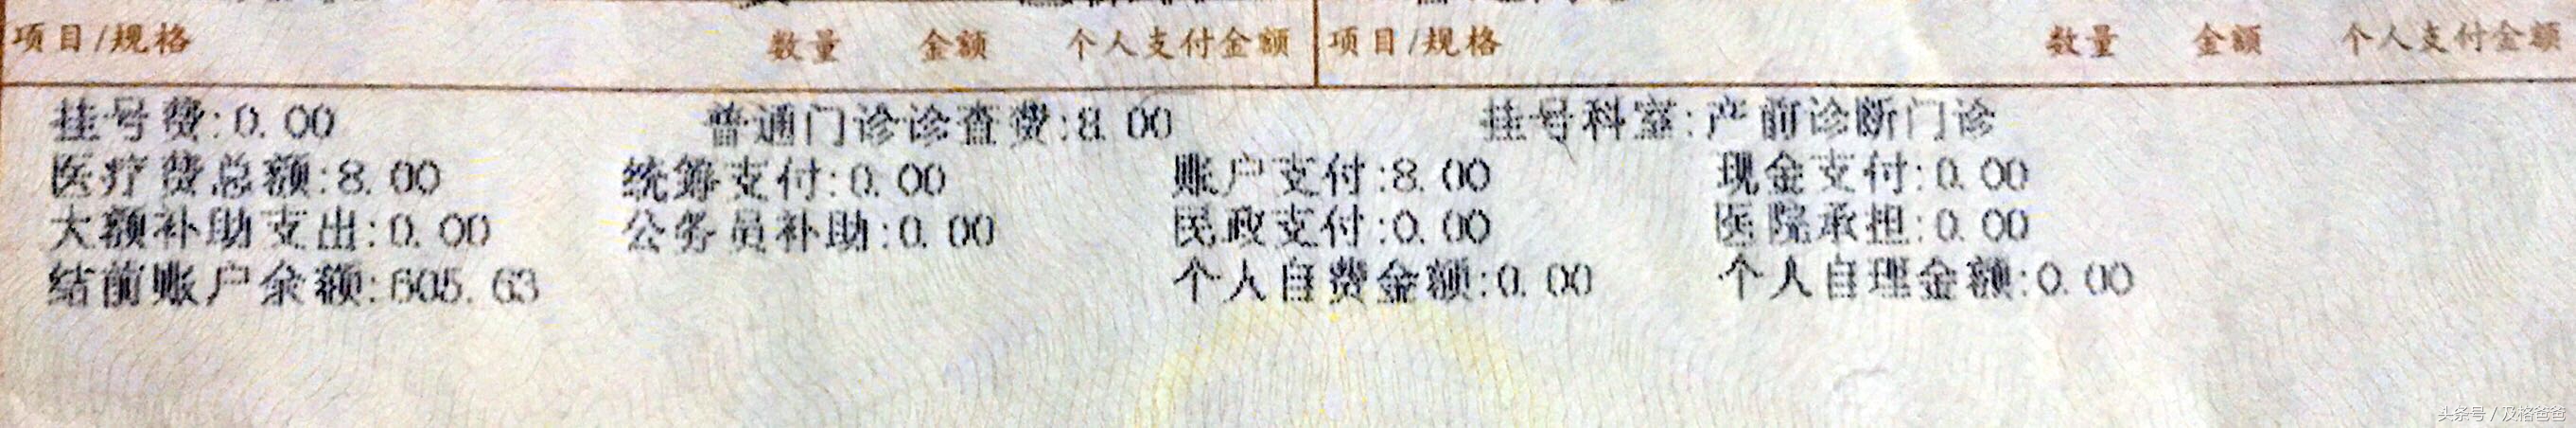 项目/规格 数量 金额 个人支付金额 项目/规格 数量 金额 个人支付金额
挂号费:0.00 普通门诊诊查费:8.00 挂号科室:产前诊断门诊
医疗费总额:8.00 统筹支付:0.00 账户支付:8.00 现金支付:0.00
大额补助支出:0.00 公务员补助:0.00 民政支付:0.00 医院承担:0.00
结前账户余额:605.63 个人自费金额:0.00 个人自理金额:0.00
头条号/及格爸爸